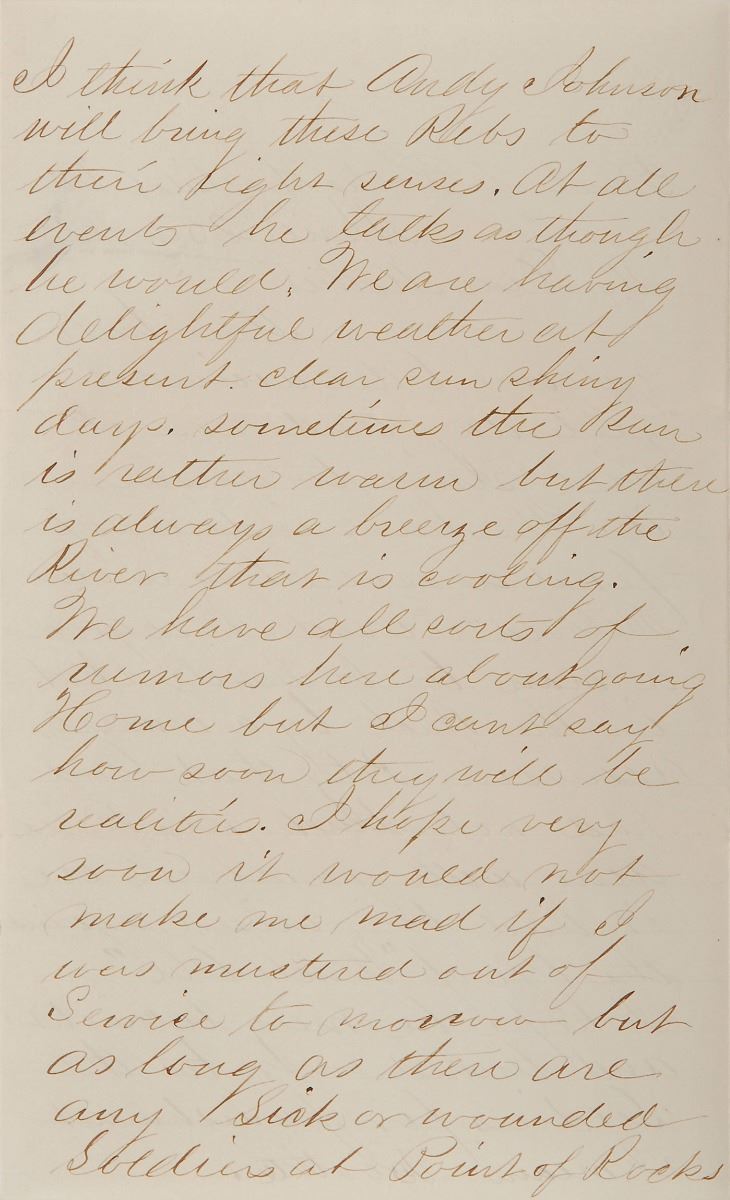 I think that Andy Johnson
will bring these Rebs to
their right senses. At all
events he talks as though
he would. We are having
delightful weather at
present. clear sun shiny
days. sometimes the sun
is rather warm but there
is always a breeze off the
River that is cooling.
We have all sorts of
rumors here about going
Home but I cant say
how soon they will be
realities. I hope very
soon it would not
make me mad if I
was mustered out of
Service to morrow but
as long as there are
any Sick or wounded
Soldiers at Point of Rocks